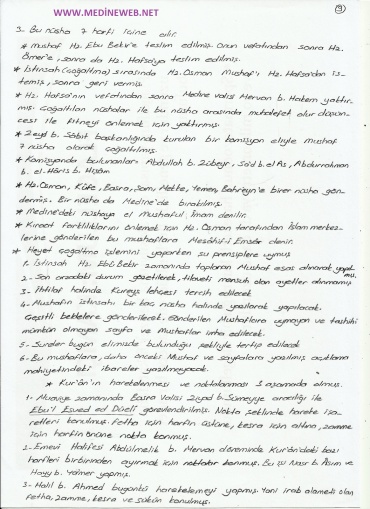 www.MEDİNEWEB.NET
9
3- Bu nüsha 7 harfi içine alır.
* Mushaf Hz. Ebu Bekir'e teslim edilmiş. Onun vefatından sonra Hz.
Ömer'e, sonra da Hz. Hafsa'ya teslim edilmiş.
* İstinsah (çoğaltma) sırasında Hz. Osman Mushaf'ı Hz. Hafsa'dan is-
temiş, sonra geri vermiş.
* Hz. Hafsa'nın vefatından sonra Medine Valisi Mervan b. Hakem yaktır-
mış. Çoğaltılan nüshalar ile bu nüsha arasında muhalefet olur düşün-
cesi ile fitneyi önlemek için yaktırmış.
* Zeyd b. Sâbit başkanlığında kurulan bir komisyon eliyle mushaf
7 nüsha olarak çoğaltılmış.
* Komisyonda bulunanlar: Abdullah b. Zübeyr, Said b. el As, Abdurrahman
b. el-Hâris b. Hişâm
* Hz. Osman, Kûfe, Basra, Şam, Mekke, Yemen, Bahreyn'e birer nüsha gön-
dermiş. Bir nüsha da Medine'de bırakılmış.
* Medine'deki nüshaya el Mushaful İmam denilir.
* Kıraat farklılıklarını önlemek için Hz. Osman tarafından İslam merkez-
lerine gönderilen bu mushaflara Mesâhif-i Emsâr denir.
* Heyet çoğaltma işlemini yaparken şu prensiplere uymuş
1. İstinsah Hz. Ebû Bekir zamanında toplanan Mushaf esas alınarak yapılmış.
2- Son arzadaki durum gözetilerek, tilaveti mensuh olan ayetler alınmamış.
3- İhtilaf halinde Kureyş lehçesi tercih edilecek
4- Mushafın istinsahı bir kaç nüsha halinde yazılarak yapılacak.
Çeşitli beldelere gönderilecek. Gönderilen Mushaflara uymayan ve tashihi
mümkün olmayan sayfa ve Mushaflar imha edilecek.
5- Sureler bugün elimizde bulunduğu şekliyle tertip edilecek
6- Bu mushaflara, daha önceki Mushaf ve sayfalara yazılmış açıklama
mahiyetindeki ibareler yazılmayacak.
* Kur'ân'ın harekelenmesi ve noktalanması 3 aşamada olmuş.
1- Muaviye zamanında Basra Valisi Ziyad b. Sümeyye aracılığı ile
Ebu'l Esved ed Düelî görevlendirilmiş. Nokta şeklinde hareke işa-
retleri konulmuş. Fetha için harfin üstüne, kesra için altına, zamme
için harfin önüne nokta konmuş.
2- Emevi Halifesi Abdülmelik b. Mervan döneminde Kur'ân'daki bazı
harfleri birbirinden ayırmak için noktalar konmuş. Bu işi Nasr b. Âsım ve
Hayy b. Ya'mer yapmış.
3- Halil b. Ahmed bugünkü harekelemeyi yapmış. Yani irab alameti olan
fetha, zamme, kesra ve sükûn konulmuş.